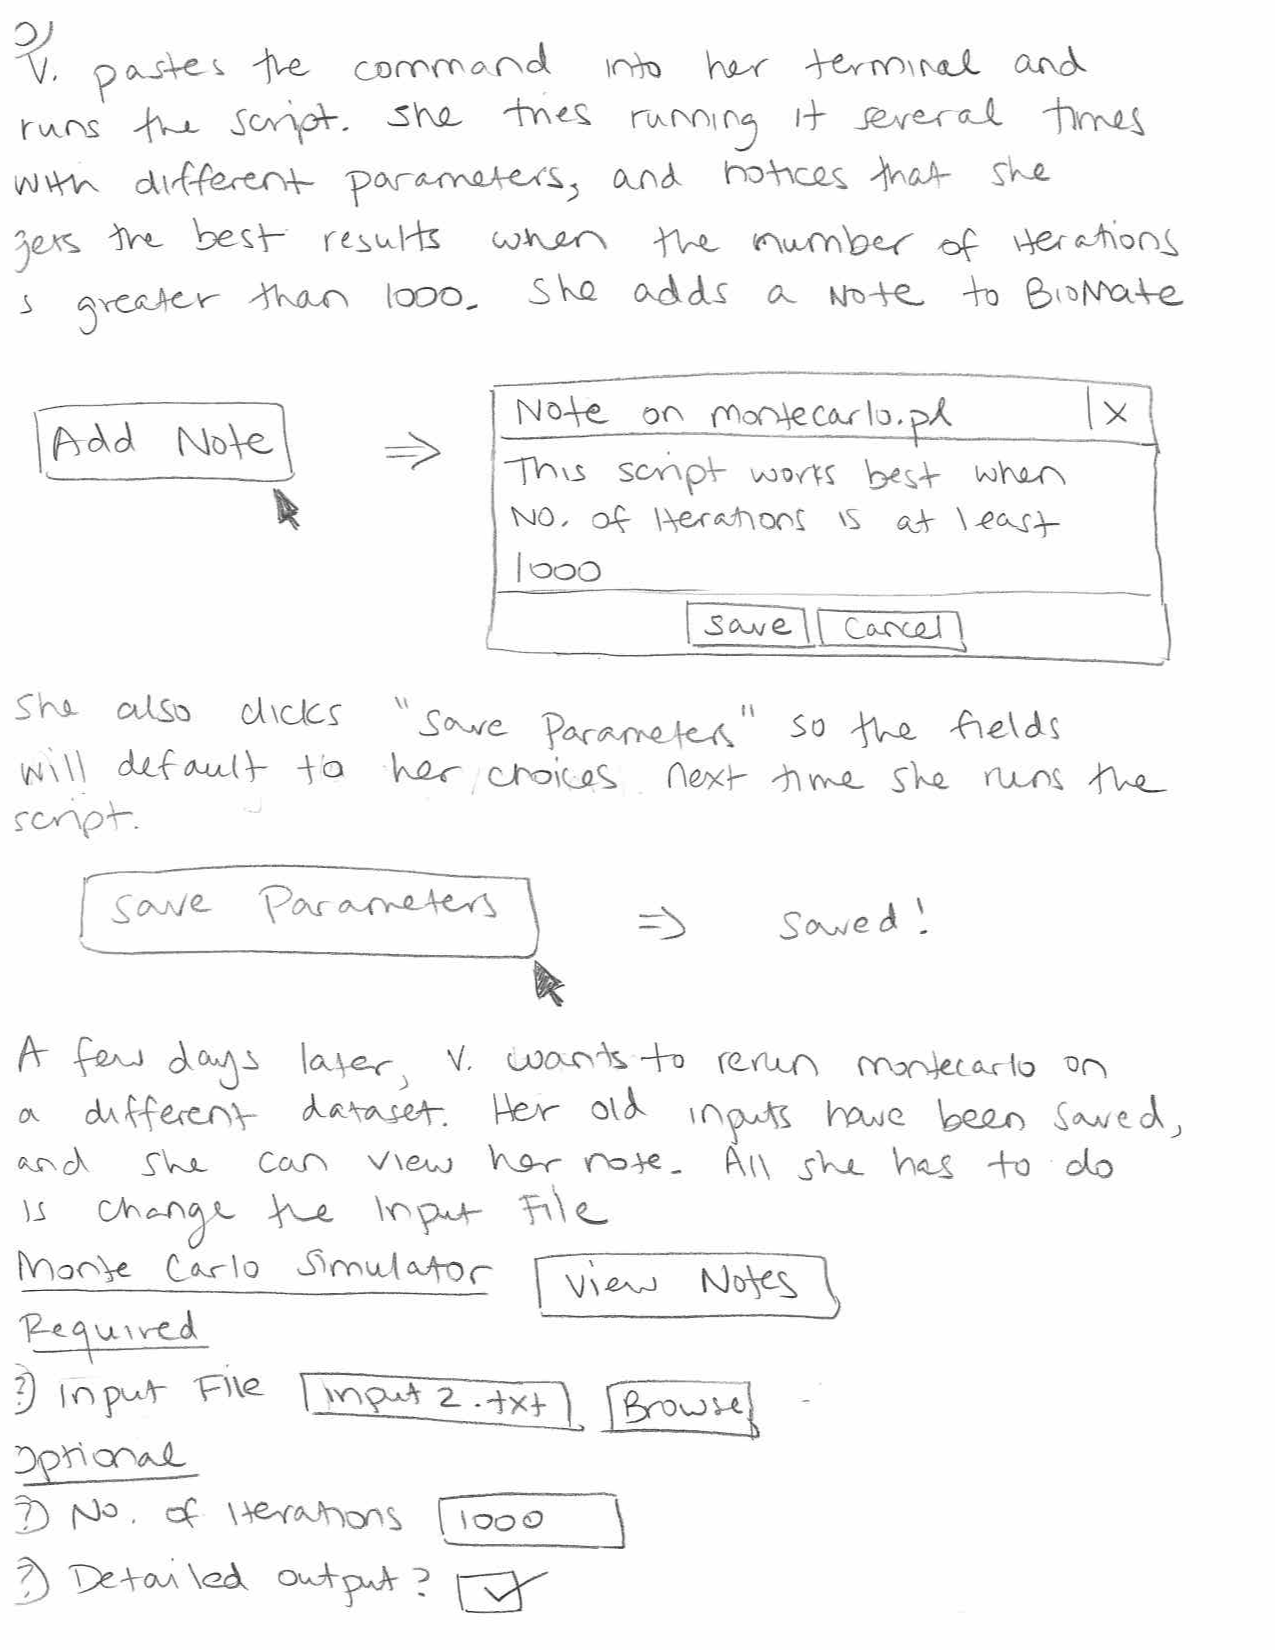 V. pastes the command into her terminal and
runs the script. She tries running it several times
with different parameters, and notices that she
gets the best results when the number of iterations
is greater than 1000. She adds a Note to BioMate
Add Note ⇒
Note on montecarlo.pl X
This script works best when
No. of Iterations is at least
1000
Save Cancel
She also clicks "Save Parameters" so the fields
will default to her choices next time she runs the
script.
Save Parameters ⇒ Saved!
A few days later, V. wants to rerun montecarlo on
a different dataset. Her old inputs have been saved,
and she can view her note. All she has to do
is change the Input File
Monte Carlo Simulator View Notes
Required
? Input File input2.txt Browse
Optional
? No. of Iterations 1000
? Detailed output? ✓